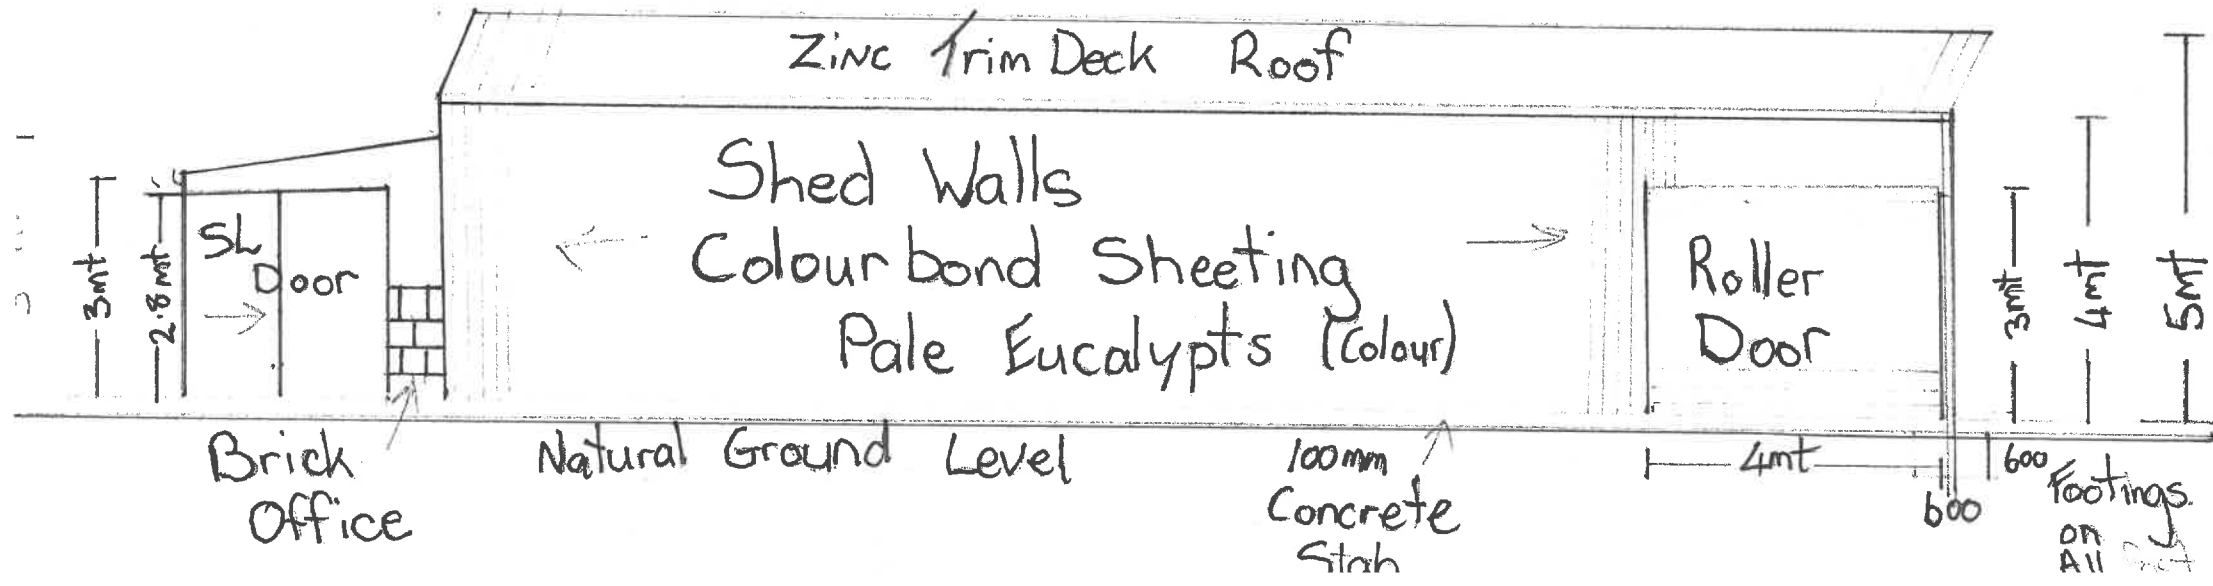 Zinc Trim Deck Roof
Shed Walls
Colourbond Sheeting
Pale Eucalypts (Colour)
SL
Door
3mt
2.8mt
Roller
Door
3mt
4mt
5mt
Brick
Office
Natural Ground Level
100mm
Concrete
4mt
600
600
Footings
on
All